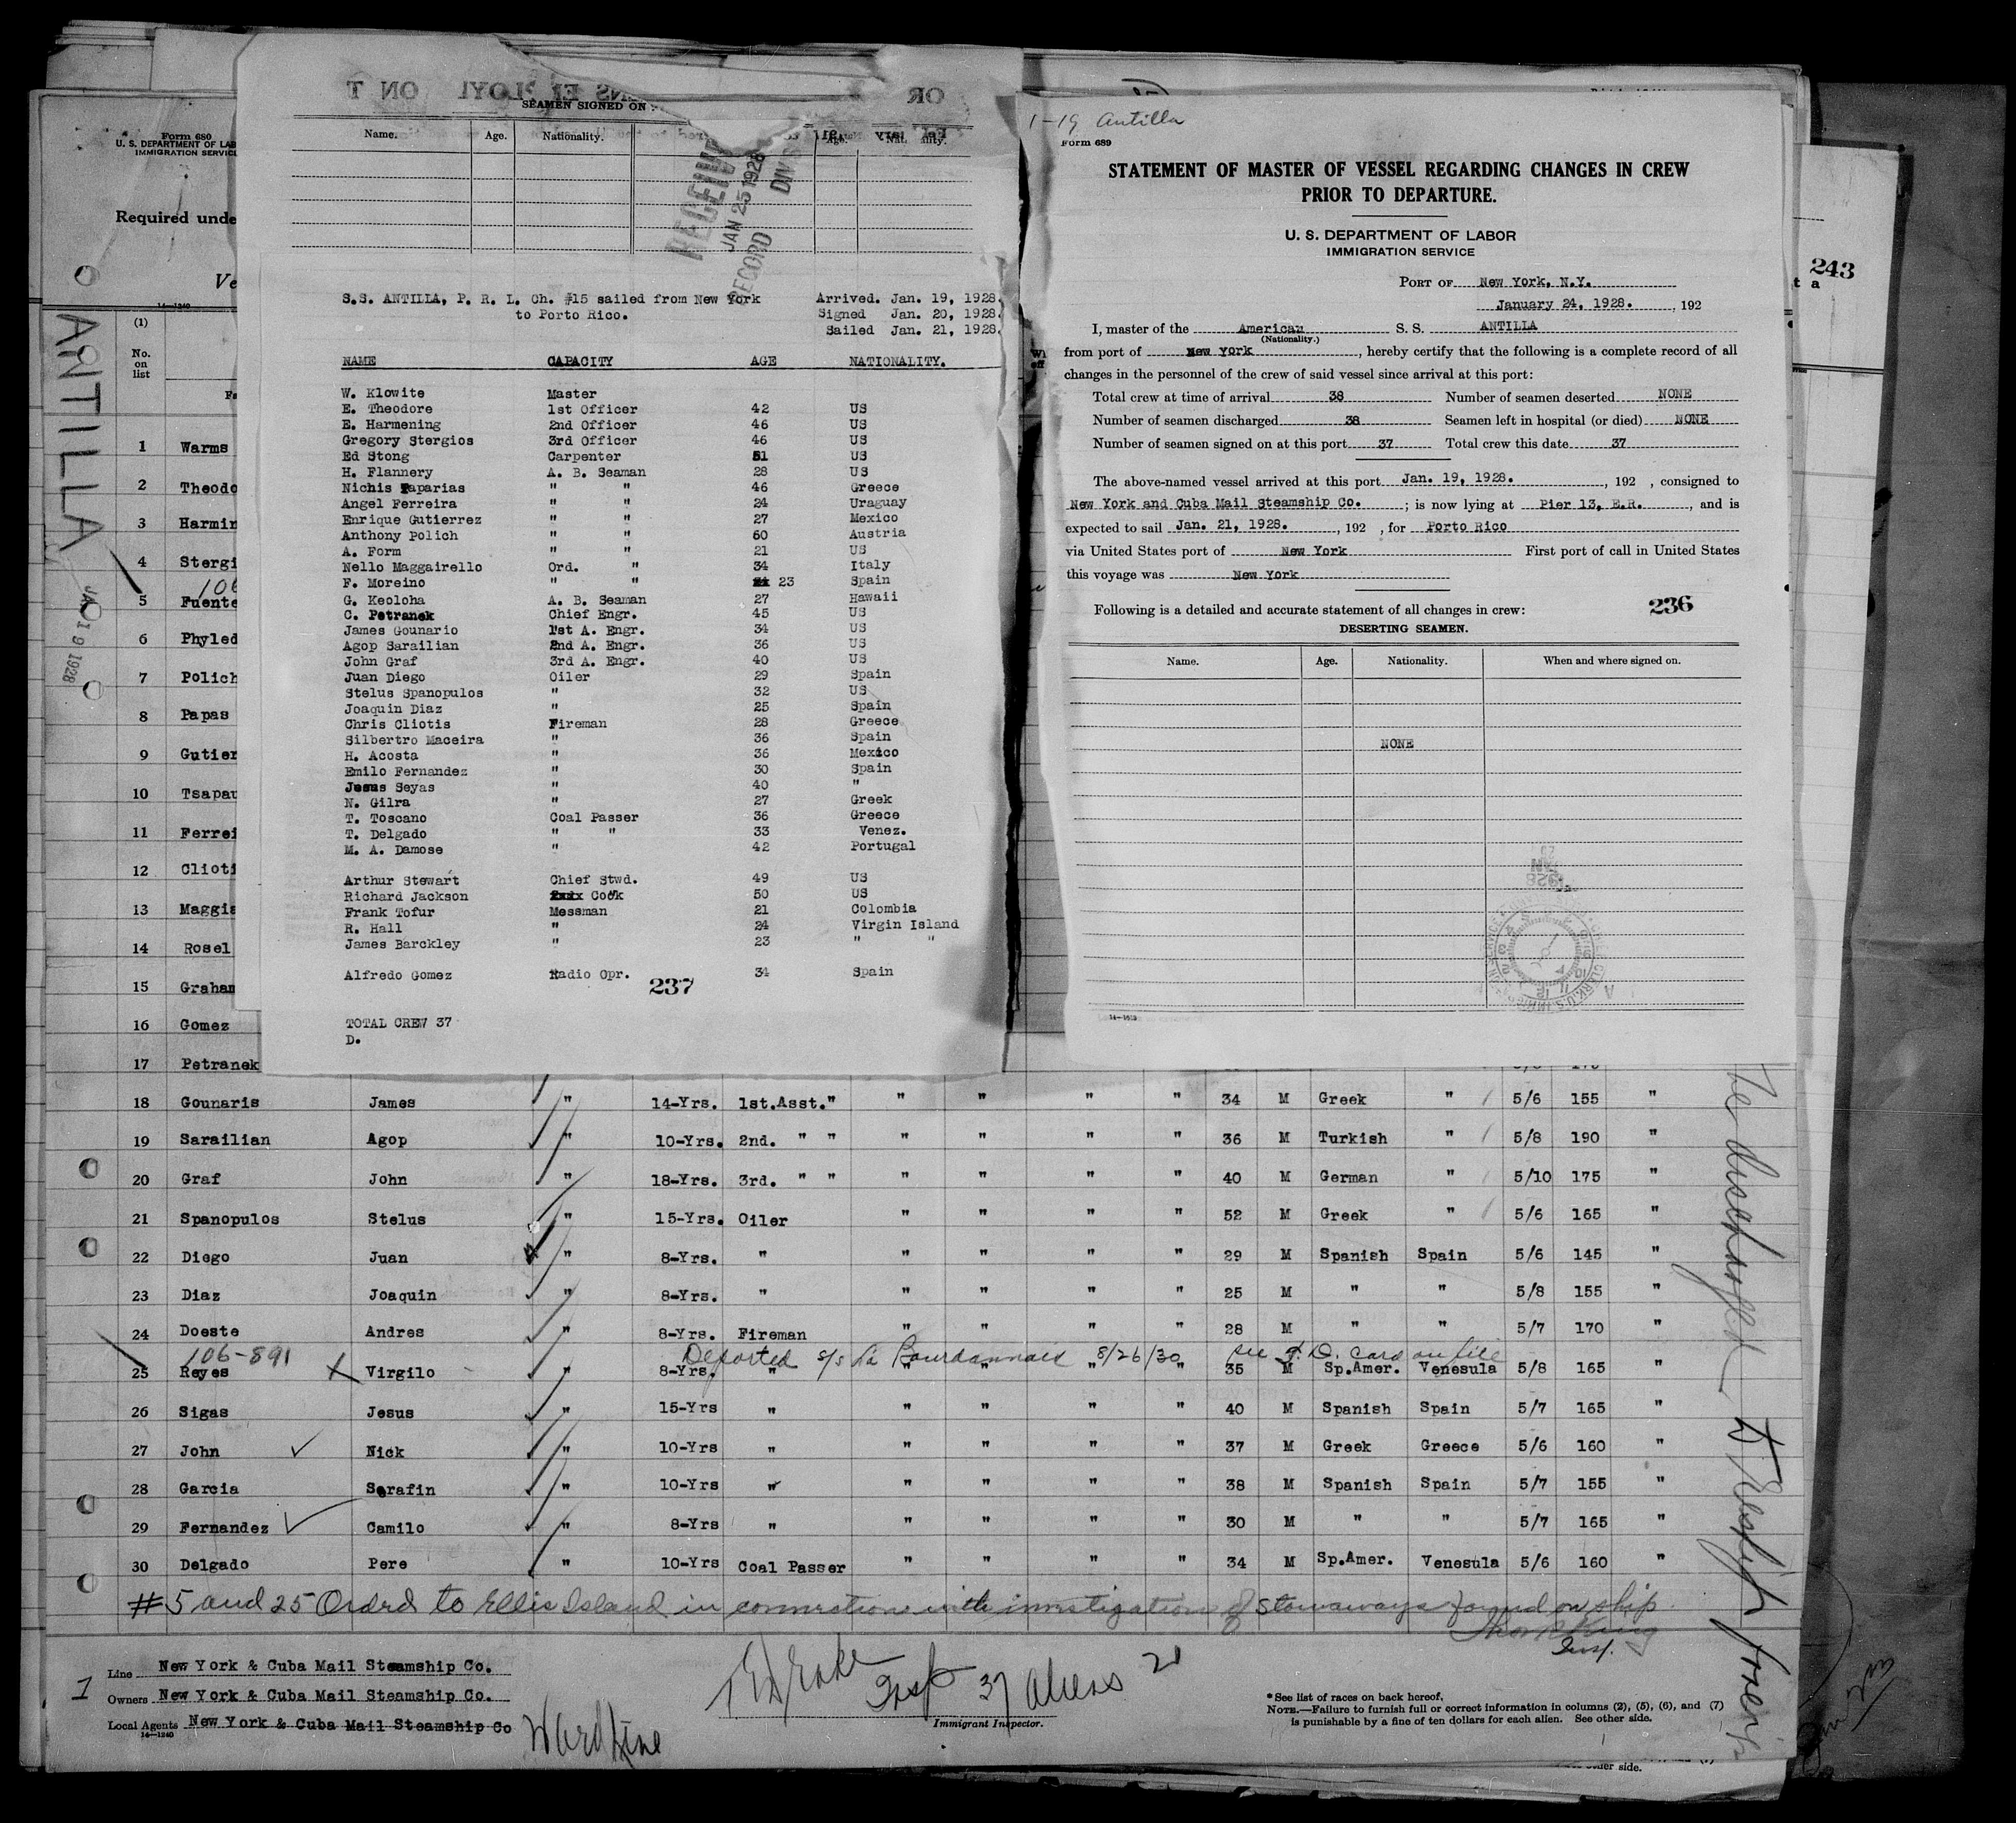 OR
SEAMEN SIGNED ON
Name. Age. Nationality.
RECEIVED
JAN 25 1928
RECORD DIVIS
S.S. ANTILLA, P. R. L. Ch. #15 sailed from New York Arrived. Jan. 19, 1928.
to Porto Rico. Signed Jan. 20, 1928.
Sailed Jan. 21, 1928.
NAME CAPACITY AGE NATIONALITY.
W. Klowite Master
E. Theodore 1st Officer 42 US
E. Harmening 2nd Officer 46 US
Gregory Stergios 3rd Officer 46 US
Ed Stong Carpenter 51 US
H. Flannery A. B. Seaman 28 US
Nichis Taparias " " 46 Greece
Angel Ferreira " " 24 Uraguay
Enrique Gutierrez " " 27 Mexico
Anthony Polich " " 50 Austria
A. Form " " 21 US
Nello Maggairello Ord. " 34 Italy
F. Moreino " " 23 Spain
G. Keoloha A. B. Seaman 27 Hawaii
C. Petranek Chief Engr. 45 US
James Gounario 1st A. Engr. 34 US
Agop Sarailian 2nd A. Engr. 36 US
John Graf 3rd A. Engr. 40 US
Juan Diego Oiler 29 Spain
Stelus Spanopulos " 32 US
Joaquin Diaz " 25 Spain
Chris Cliotis Fireman 28 Greece
Silbertro Maceira " 36 Spain
H. Acosta " 36 Mexico
Emilo Fernandez " 30 Spain
Jesus Seyas " 40 "
N. Gilra " 27 Greek
T. Toscano Coal Passer 36 Greece
T. Delgado " " 33 Venez.
M. A. Damose " 42 Portugal
Arthur Stewart Chief Stwd. 49 US
Richard Jackson Cook 50 US
Frank Tofur Messman 21 Colombia
R. Hall " 24 Virgin Island
James Barckley " 23 " "
Alfredo Gomez Radio Opr. 34 Spain
237
TOTAL CREW 37
D.
1-19 Antilla
Form 689
STATEMENT OF MASTER OF VESSEL REGARDING CHANGES IN CREW
PRIOR TO DEPARTURE.
U. S. DEPARTMENT OF LABOR
IMMIGRATION SERVICE
PORT OF New York, N.Y.
January 24, 1928. , 192
I, master of the American S. S. ANTILLA
(Nationality.)
from port of New York , hereby certify that the following is a complete record of all
changes in the personnel of the crew of said vessel since arrival at this port:
Total crew at time of arrival 38 Number of seamen deserted NONE
Number of seamen discharged 38 Seamen left in hospital (or died) NONE
Number of seamen signed on at this port 37 Total crew this date 37
The above-named vessel arrived at this port Jan. 19, 1928. , 192 , consigned to
New York and Cuba Mail Steamship Co. ; is now lying at Pier 13, E.R. , and is
expected to sail Jan. 21, 1928. , 192 , for Porto Rico
via United States port of New York First port of call in United States
this voyage was New York
Following is a detailed and accurate statement of all changes in crew: 236
DESERTING SEAMEN.
Name. Age. Nationality. When and where signed on.
NONE
14-1613
243
t a
Form 680
U. S. DEPARTMENT OF LAB
IMMIGRATION SERVIC
Required unde
Ve
14-1240
ANTILLA
JAN 19 1928
(1)
No.
on
list
1 Warms
2 Theodo
3 Harmin
4 Stergi
106
5 Fuente
6 Phyled
7 Polich
8 Papas
9 Gutier
10 Tsapau
11 Ferrei
12 Clioti
13 Maggia
14 Rosel
15 Graham
16 Gomez
17 Petranek
18 Gounaris James " 14-Yrs. 1st.Asst." " " " " 34 M Greek " 5/6 155 "
19 Sarailian Agop " 10-Yrs. 2nd. " " " " " " 36 M Turkish " 5/8 190 "
20 Graf John " 18-Yrs. 3rd. " " " " " " 40 M German " 5/10 175 "
21 Spanopulos Stelus " 15-Yrs. Oiler " " " " 52 M Greek " 5/6 165 "
22 Diego Juan " 8-Yrs. " " " " " 29 M Spanish Spain 5/6 145 "
23 Diaz Joaquin " 8-Yrs. " " " " " 25 M " " 5/8 155 "
24 Doeste Andres " 8-Yrs. Fireman " " " " 28 M " " 5/7 170 "
106-891 Deported s/s La Bourdannais 8/26/30 see I. D. Card on file
25 Reyes Virgilo " 8-Yrs. " " " " " 35 M Sp.Amer. Venesula 5/8 165 "
26 Sigas Jesus " 15-Yrs " " " " " 40 M Spanish Spain 5/7 165 "
27 John Nick " 10-Yrs " " " " " 37 M Greek Greece 5/6 160 "
28 Garcia Serafin " 10-Yrs " " " " " 38 M Spanish Spain 5/7 155 "
29 Fernandez Camilo " 8-Yrs " " " " " 30 M " " 5/7 165 "
30 Delgado Pere " 10-Yrs Coal Passer " " " " 34 M Sp.Amer. Venesula 5/6 160 "
#5 and 25 Ordrd to Ellis Island in connection with investigation of Stowaways found on ship.
Thos King
Insp.
1
Line New York & Cuba Mail Steamship Co.
Owners New York & Cuba Mail Steamship Co.
Local Agents New York & Cuba Mail Steamship Co
14-1240
Ward Line
Insp 37 Aliens
Immigrant Inspector.
* See list of races on back hereof.
NOTE.—Failure to furnish full or correct information in columns (2), (5), (6), and (7)
is punishable by a fine of ten dollars for each alien. See other side.
other side.